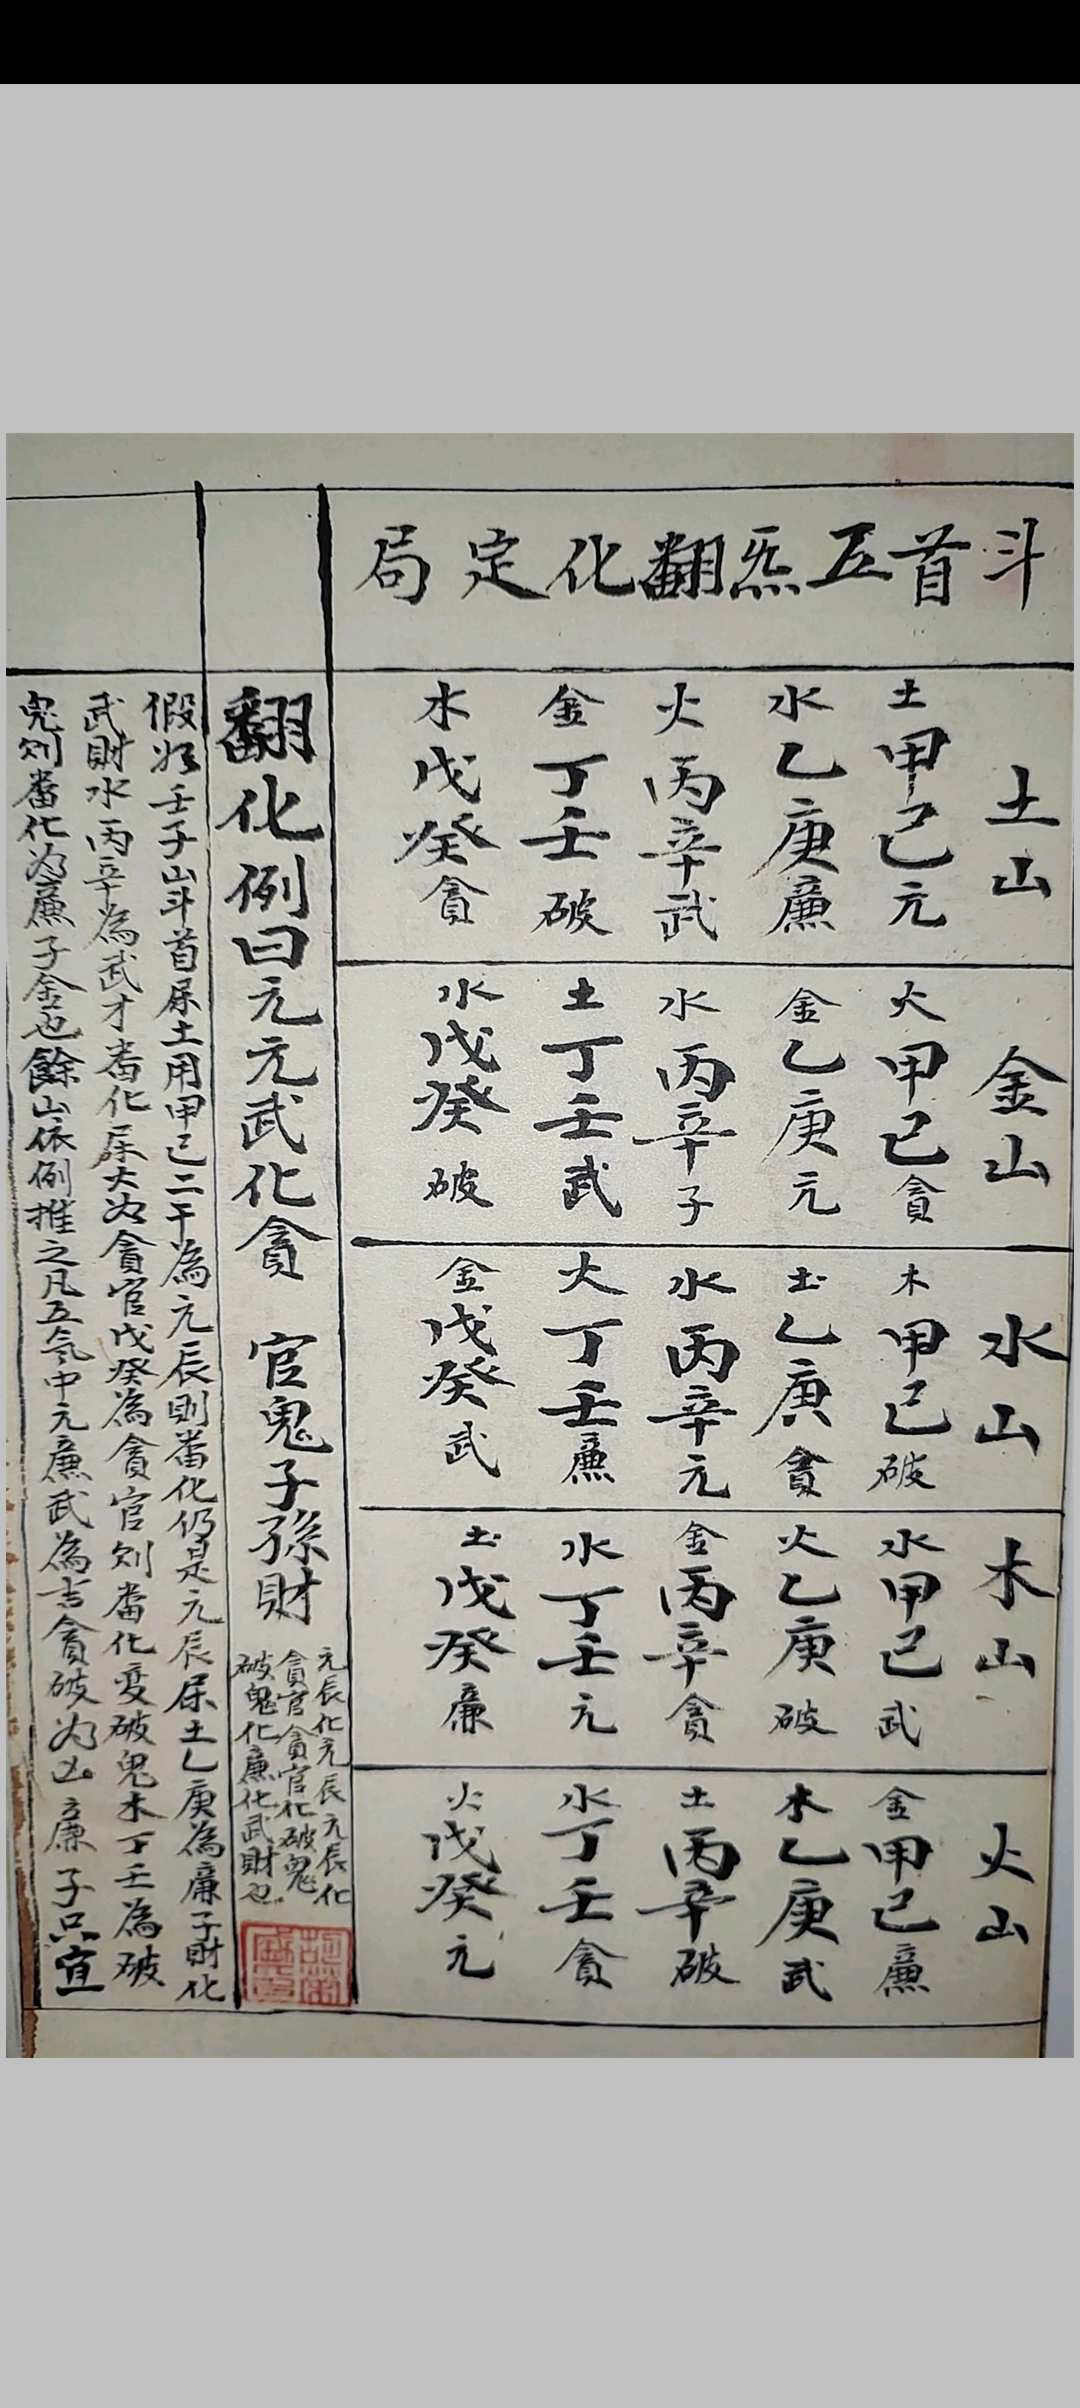 斗首五炁翻化定局
土山
土甲己元
水乙庚廉
火丙辛武
金丁壬破
木戊癸貪
金山
火甲己貪
金乙庚元
水丙辛子
土丁壬武
水戊癸破
水山
木甲己破
土乙庚貪
水丙辛元
火丁壬廉
金戊癸武
木山
水甲己武
火乙庚破
金丙辛貪
水丁壬元
土戊癸廉
火山
金甲己廉
木乙庚武
土丙辛破
水丁壬貪
火戊癸元
翻化例曰元元武化貪 官鬼子孫財
元辰化元辰元辰化
貪官貪官化破鬼
破鬼化廉化武財也
假如壬子山斗首屬土用甲己二干為元辰則畨化仍是元辰屬土乙庚為廉子財化
武財水丙辛為武才畨化屬火为貪官戊癸為貪官则畨化变破鬼木丁壬為破
鬼则畨化为廉子金也餘山依例推之凡五气中元廉武為吉貪破为凶廉子只宜